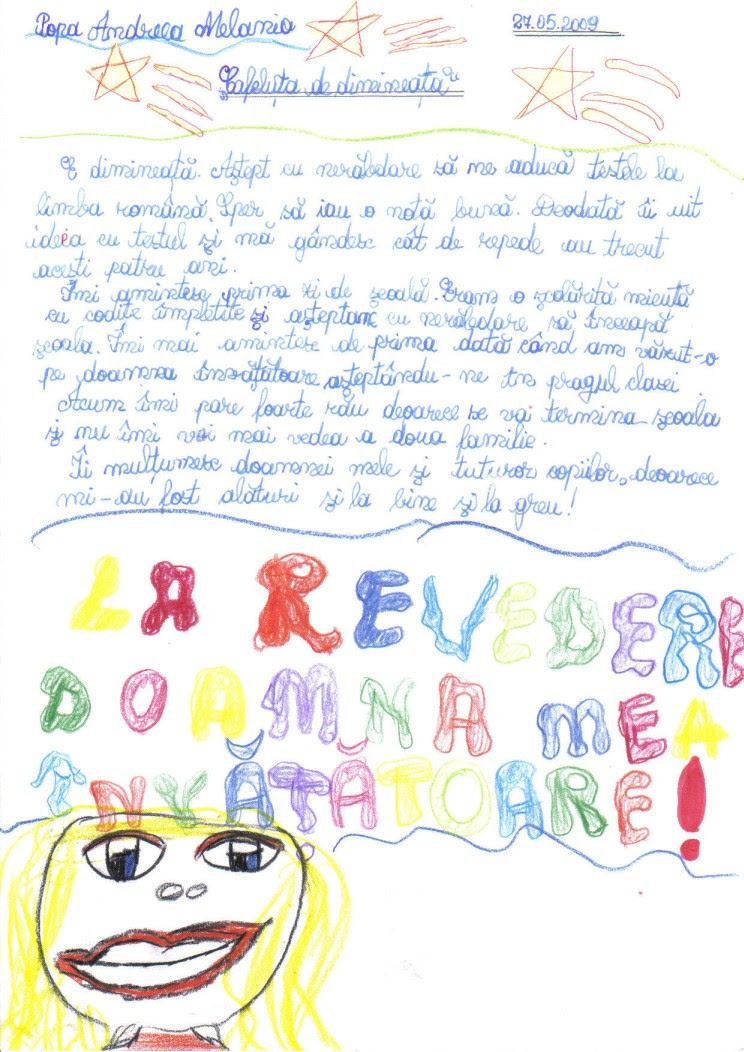 Popa Andreea Melania 27.05.2009
„Cafeluța de dimineață”
E dimineață. Aștept cu nerăbdare să ne aducă testele la
limba română. Sper să iau o notă bună. Deodată îi uit
ideia cu testul și mă gândesc cât de repede au trecut
acești patru ani.
Îmi amintesc prima zi de școală. Eram o școlăriță micuță
cu codițe împletite și așteptam cu nerăbdare să înceapă
școala. Îmi mai amintesc de prima dată când am văzut-o
pe doamna învățătoare așteptându-ne în pragul clasei
Acum îmi pare foarte rău deoarece se va termina școala
și nu îmi voi mai vedea a doua familie.
Îi mulțumesc doamnei mele și tuturor copiilor, deoarece
mi-au fost alături și la bine și la greu!
LA REVEDERE
DOAMNA MEA
ÎNVĂȚĂTOARE!